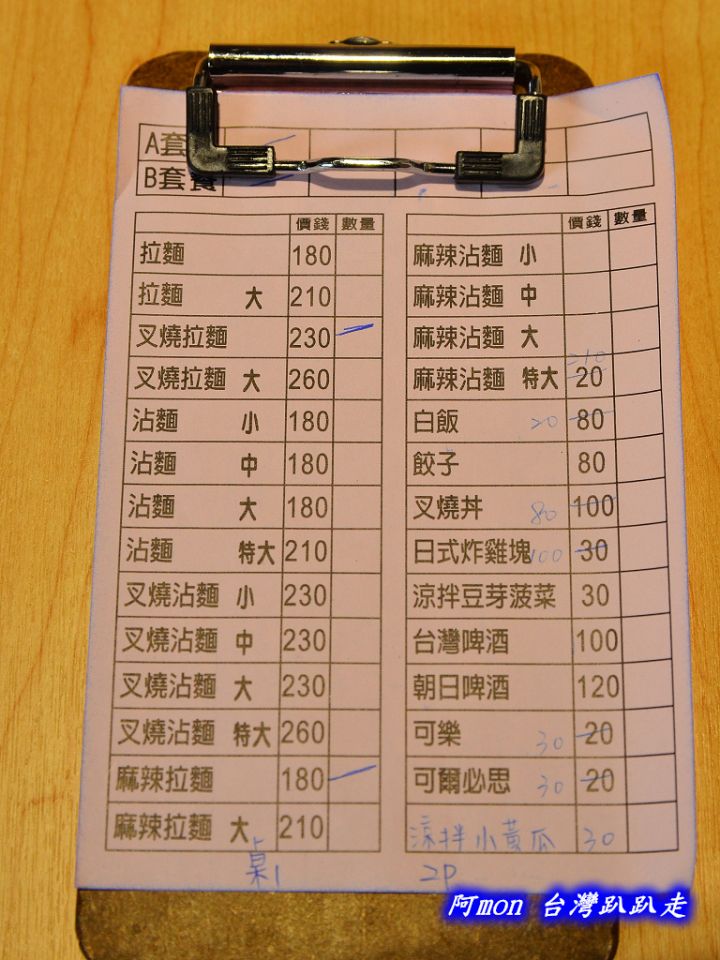 A套
B套餐
價錢 數量
拉麵 180
拉麵 大 210
叉燒拉麵 230
叉燒拉麵 大 260
沾麵 小 180
沾麵 中 180
沾麵 大 180
沾麵 特大 210
叉燒沾麵 小 230
叉燒沾麵 中 230
叉燒沾麵 大 230
叉燒沾麵 特大 260
麻辣拉麵 180
麻辣拉麵 大 210
價錢 數量
麻辣沾麵 小
麻辣沾麵 中
麻辣沾麵 大
麻辣沾麵 特大 20 210
白飯 20 80
餃子 80
叉燒丼 80 100
日式炸雞塊 100 30
涼拌豆芽菠菜 30
台灣啤酒 100
朝日啤酒 120
可樂 30 20
可爾必思 30 20
涼拌小黃瓜 30
桌1 2P
阿mon 台灣趴趴走